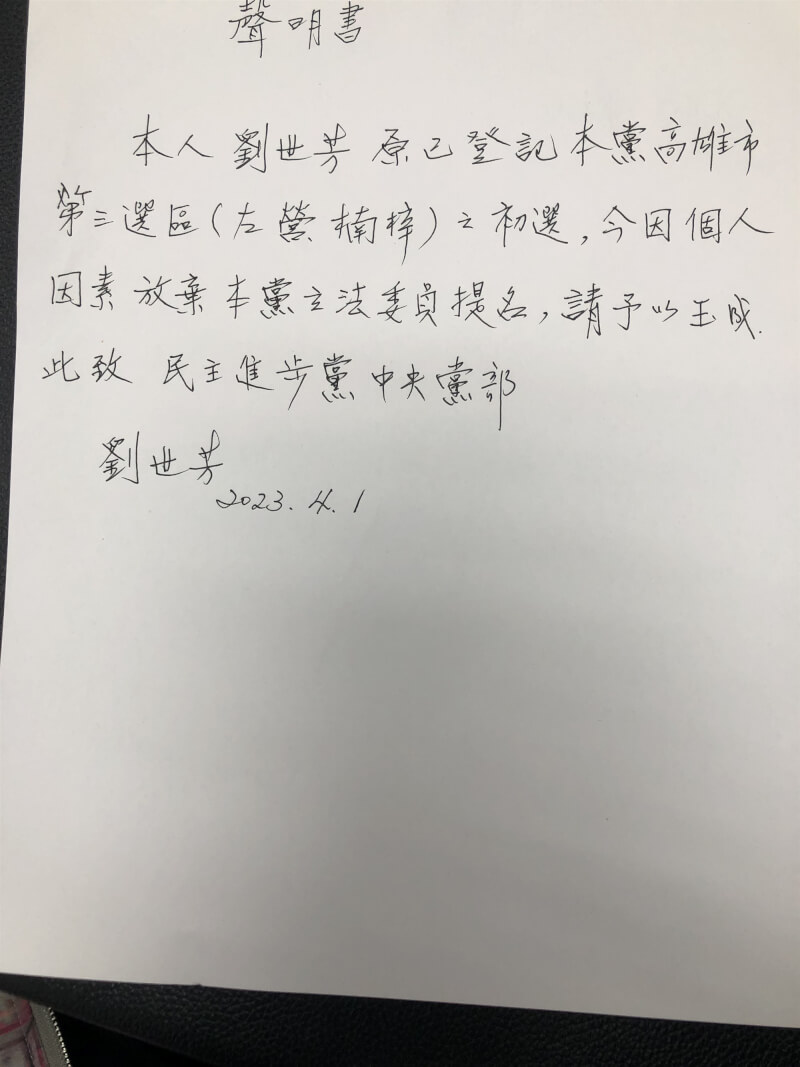 聲明書
本人劉世芳原已登記本黨高雄市
第三選區(左營楠梓)之初選,今因個人
因素放棄本黨立法委員提名,請予以玉成.
此致 民主進步黨中央黨部
劉世芳
2023.4.1